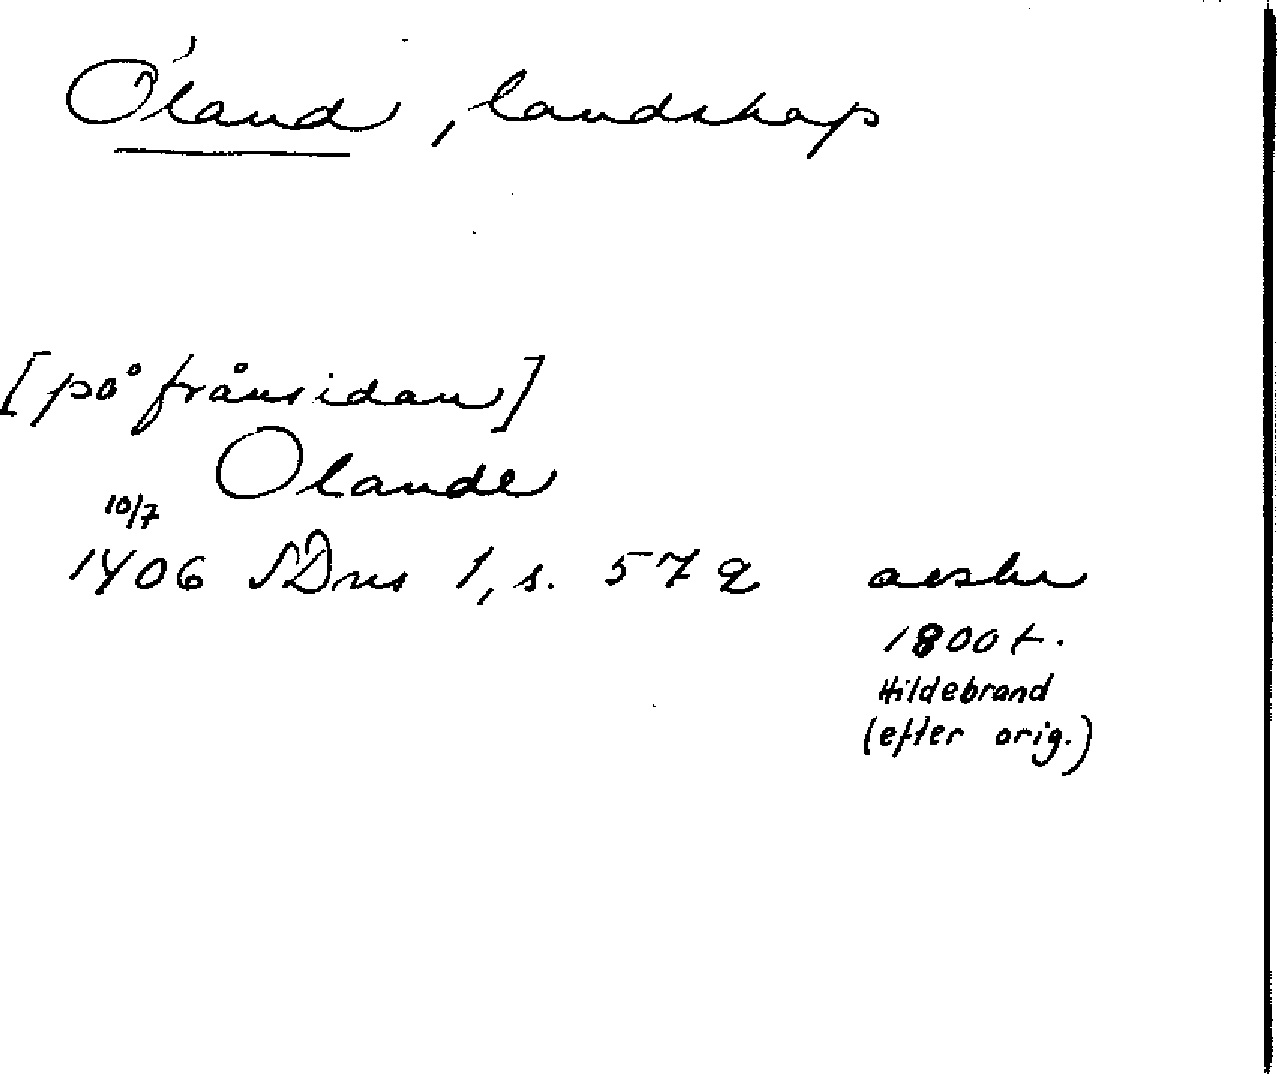 Öland, landskap
[på frånsidan]
Olande
10/7
1406 SDns 1, s. 572 avskr
1800t.
Hildebrand
(efter orig.)